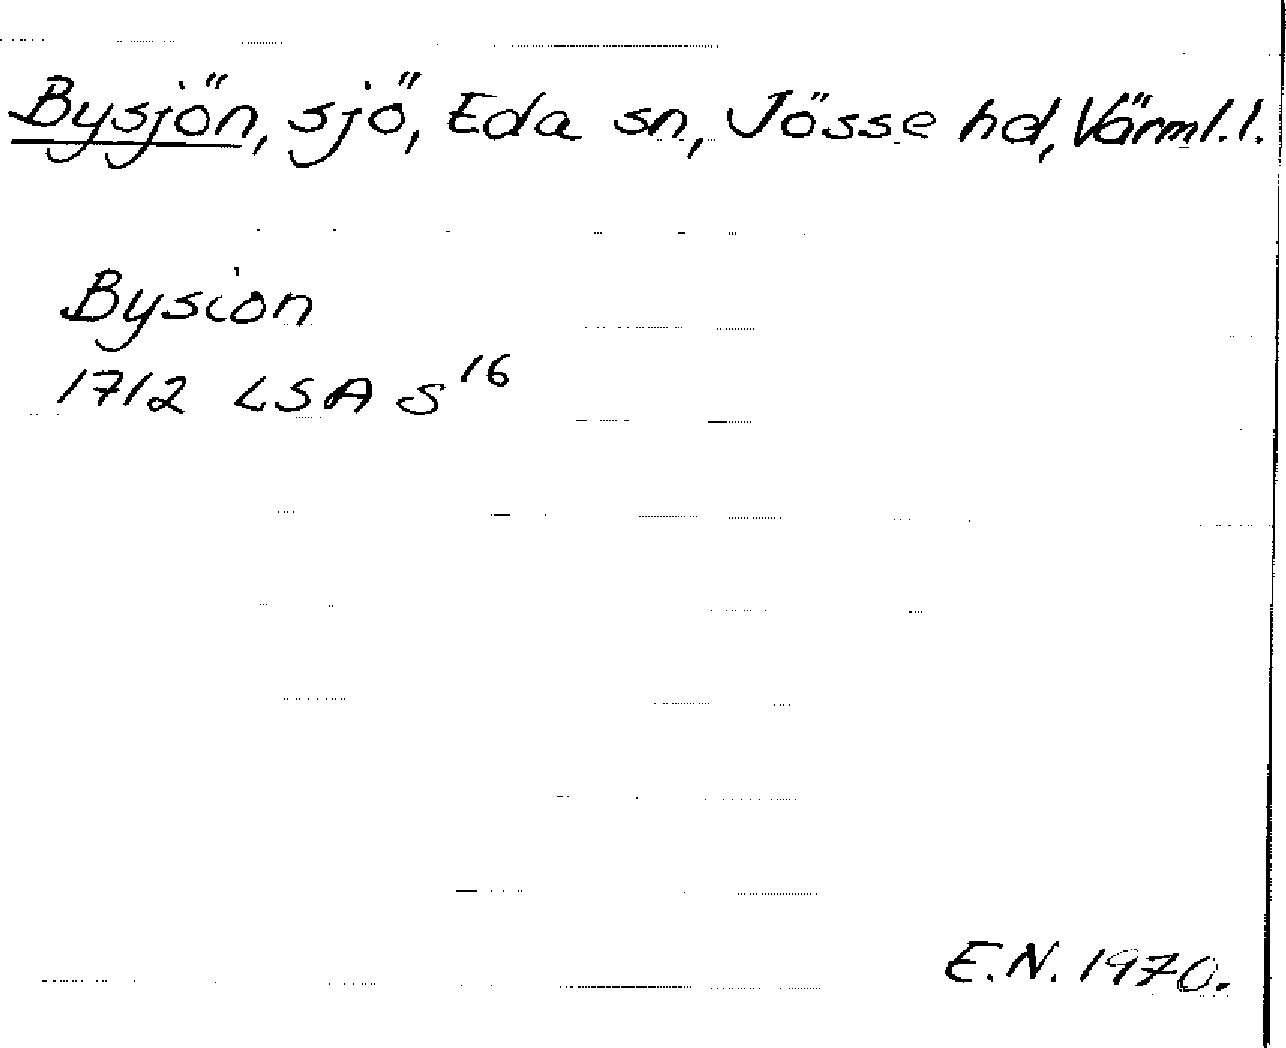 Bysjön, sjö, Eda sn, Jösse hd, Värml. l.
Bysion
1712 LSA S16
E.N. 1970.